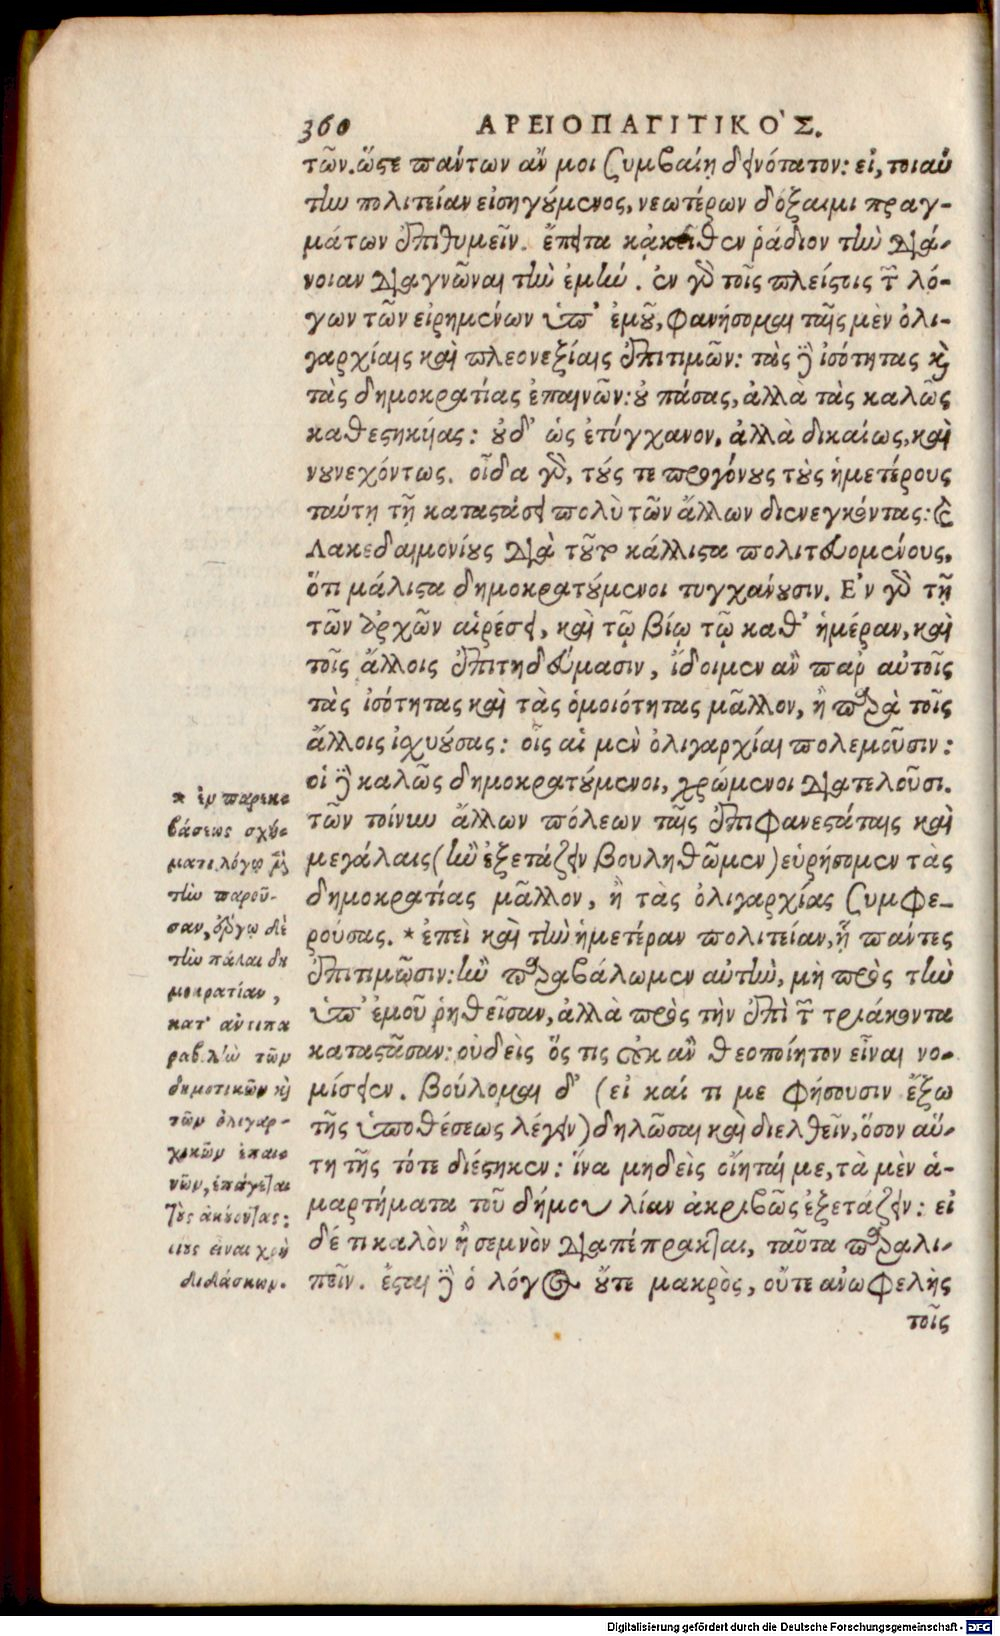 360 ΑΡΕΙΟΠΑΓΙΤΙΚΟ΄Σ.
τῶν. ὥστε πάντων ἄν μοι συμβαίη δεινότατον: εἰ, τοιαύ
την πολιτείαν εἰσηγούμενος, νεωτέρων δόξαιμι πραγ-
μάτων ἐπιθυμεῖν. ἔπειτα κἀκεῖθεν ῥάδιον τὴν διά-
νοιαν διαγνῶναι τὴν ἐμήν. ἐν γὰρ τοῖς πλείστοις τῶν λό-
γων τῶν εἰρημένων ὑπ' ἐμοῦ, φανήσομαι ταῖς μὲν ὀλι-
γαρχίαις καὶ πλεονεξίαις ἐπιτιμῶν: τὰς δὲ ἰσότητας καὶ
τὰς δημοκρατίας ἐπαινῶν: οὐ πάσας, ἀλλὰ τὰς καλῶς
καθεστηκυίας: οὐδ' ὡς ἐτύγχανον. ἀλλὰ δικαίως, καὶ
νουνεχόντως. οἶδα γὰρ, τούς τε προγόνους τοὺς ἡμετέρους
ταύτῃ τῇ καταστάσει πολὺ τῶν ἄλλων διενεγκόντας: καὶ
Λακεδαιμονίους διὰ τοῦτο κάλλιστα πολιτευομένους,
ὅτι μάλιστα δημοκρατούμενοι τυγχάνουσιν. Ἐν γὰρ τῇ
τῶν ἀρχῶν αἱρέσει, καὶ τῷ βίῳ τῷ καθ' ἡμέραν, καὶ
τοῖς ἄλλοις ἐπιτηδεύμασιν, ἴδοιμεν ἂν παρ αὐτοῖς
τὰς ἰσότητας καὶ τὰς ὁμοιότητας μᾶλλον, ἢ παρὰ τοῖς
ἄλλοις ἰσχυούσας: οἷς αἱ μὲν ὀλιγαρχίαι πολεμοῦσιν:
οἱ δὲ καλῶς δημοκρατούμενοι, χρώμενοι διατελοῦσι.
τῶν τοίνυν ἄλλων πόλεων ταῖς ἐπιφανεστάταις καὶ
μεγάλαις (ἢν ἐξετάζειν βουληθῶμεν) εὑρήσομεν τὰς
δημοκρατίας μᾶλλον, ἢ τὰς ὀλιγαρχίας συμφε-
ρούσας. * ἐπεὶ καὶ τὴν ἡμετέραν πολιτείαν, ᾗ πάντες
ἐπιτιμῶσιν: ἢν παραβάλωμεν αὐτὴν, μὴ πρὸς τὴν
ὑπ' ἐμοῦ ῥηθεῖσαν, ἀλλὰ πρὸς τὴν ἐπὶ τῶν τριάκοντα
καταστᾶσαν: οὐδεὶς ὅς τις οὐκ ἂν θεοποίητον εἶναι νο-
μίσειεν. βούλομαι δ' (εἰ καί τι με φήσουσιν ἔξω
τῆς ὑποθέσεως λέγειν) δηλῶσαι καὶ διελθεῖν, ὅσον αὕ-
τη τῆς τότε διέστηκεν: ἵνα μηδεὶς οἴηταί με, τὰ μὲν ἁ-
μαρτήματα τοῦ δήμου λίαν ἀκριβῶς ἐξετάζειν: εἰ
δέ τι καλὸν ἢ σεμνὸν διαπέπρακται, ταῦτα παραλι-
πεῖν. ἔσται δὲ ὁ λόγος οὔτε μακρὸς, οὔτε ἀνωφελὴς
τοῖς
* ἐν παρεκ-
βάσεως σχή-
ματι λόγῳ μὲν
τὴν παροῦ-
σαν, ἔργῳ δὲ
τὴν πάλαι δη
μοκρατίαν,
κατ' ἀντιπα
ραβολὴν τῶν
δημοτικῶν καὶ
τῶν ὀλιγαρ-
χικῶν ἐπαι-
νῶν, ἐπάγεται
τοὺς ἀκούοντας:
εἶναι χρὴ
διδάσκων.